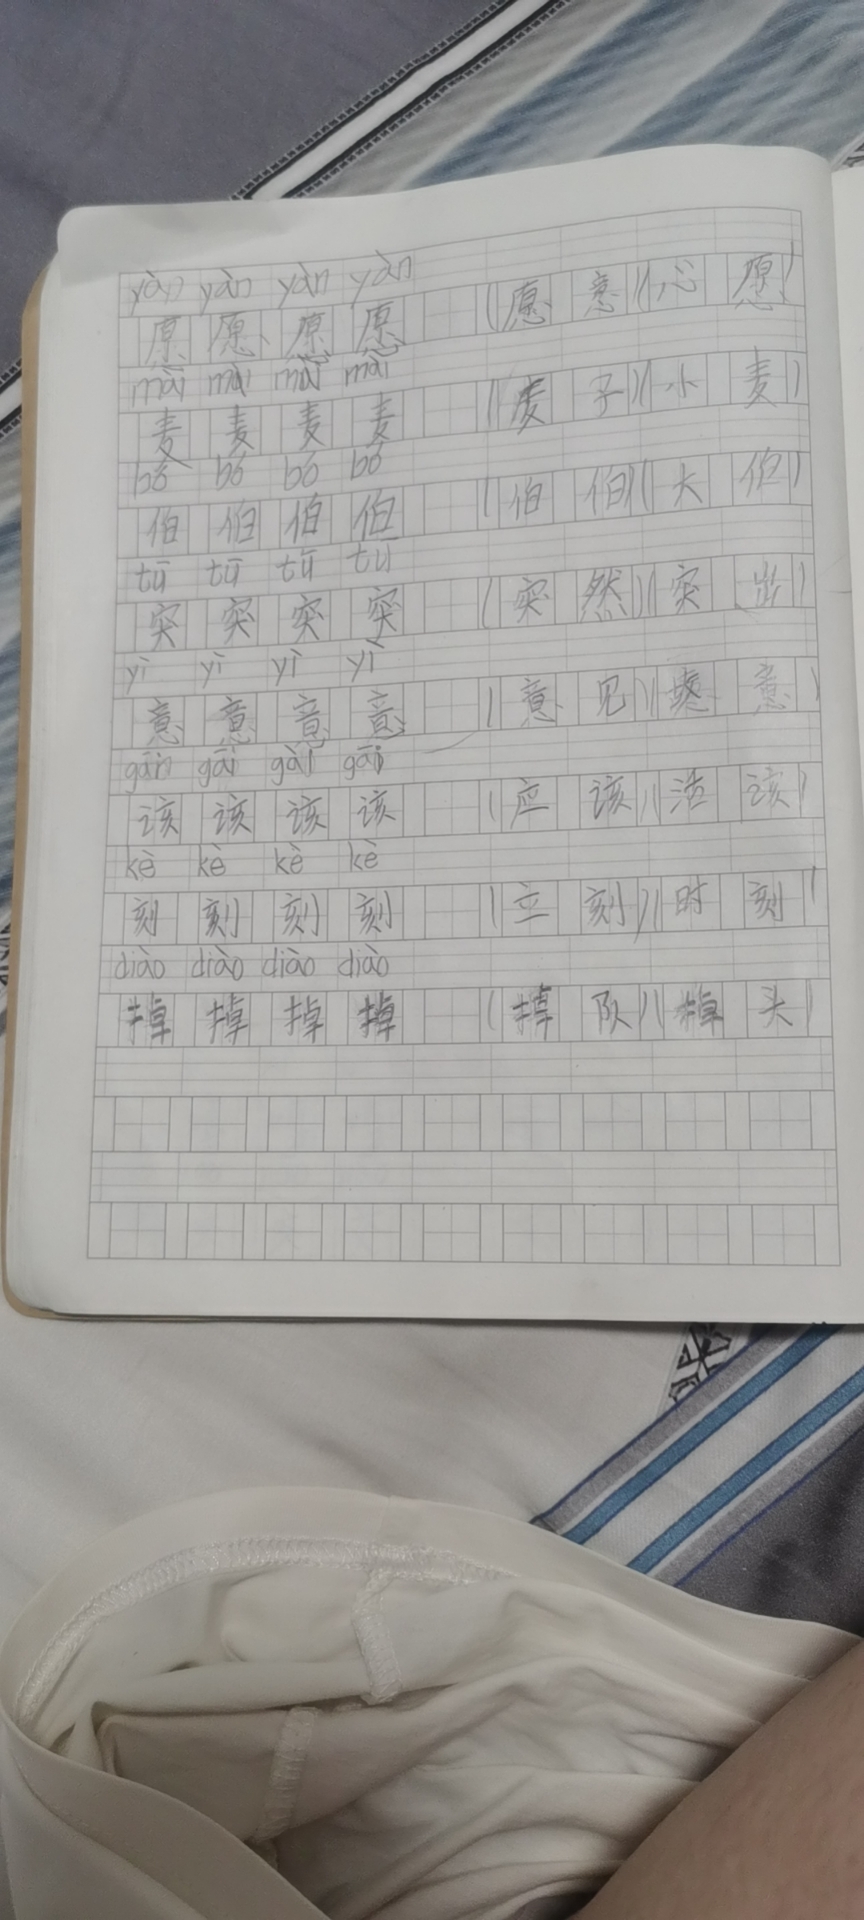 yàn yàn yàn yàn
愿 愿 愿 愿 (愿意)(心愿)
mài mài mài mài
麦 麦 麦 麦 (麦子)(小麦)
bó bó bó bó
伯 伯 伯 伯 (伯伯)(大伯)
tū tū tū tū
突 突 突 突 (突然)(突出)
yì yì yì yì
意 意 意 意 (意见)( 意)
gāi gāi gāi
该 该 该 该 (应该)(活该)
kè kè kè kè
刻 刻 刻 刻 (立刻)(时刻)
diào diào diào diào
掉 掉 掉 掉 (掉队)(掉头)